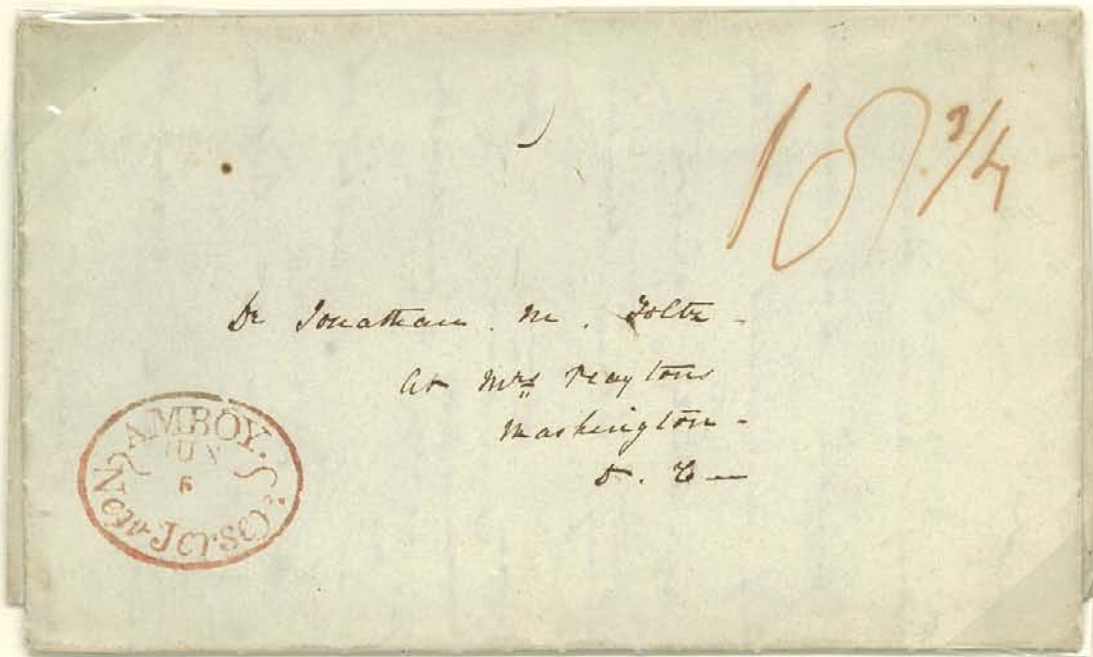 18 3/4
Dr Jonathan. M. Foltz -
At Mrs Peaytons
Washington -
D. C —
AMBOY.
JUN
New-Jersey.